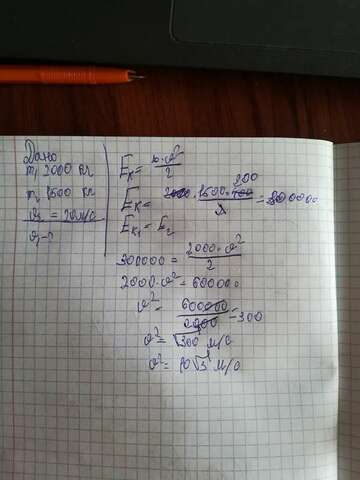 Дано
m₁ 2000 кг
m₂ 1500 кг
v₂ = 20 м/с
v₁ - ?
Eₖ = m·v²/2
Eₖ = 1500·400/2 = 300000
Eₖ₁ = E₂
300000 = 2000·v²/2
2000·v² = 600000
v² = 600000/2000 = 300
v² = √300 м/с
v² = 10√3 м/с